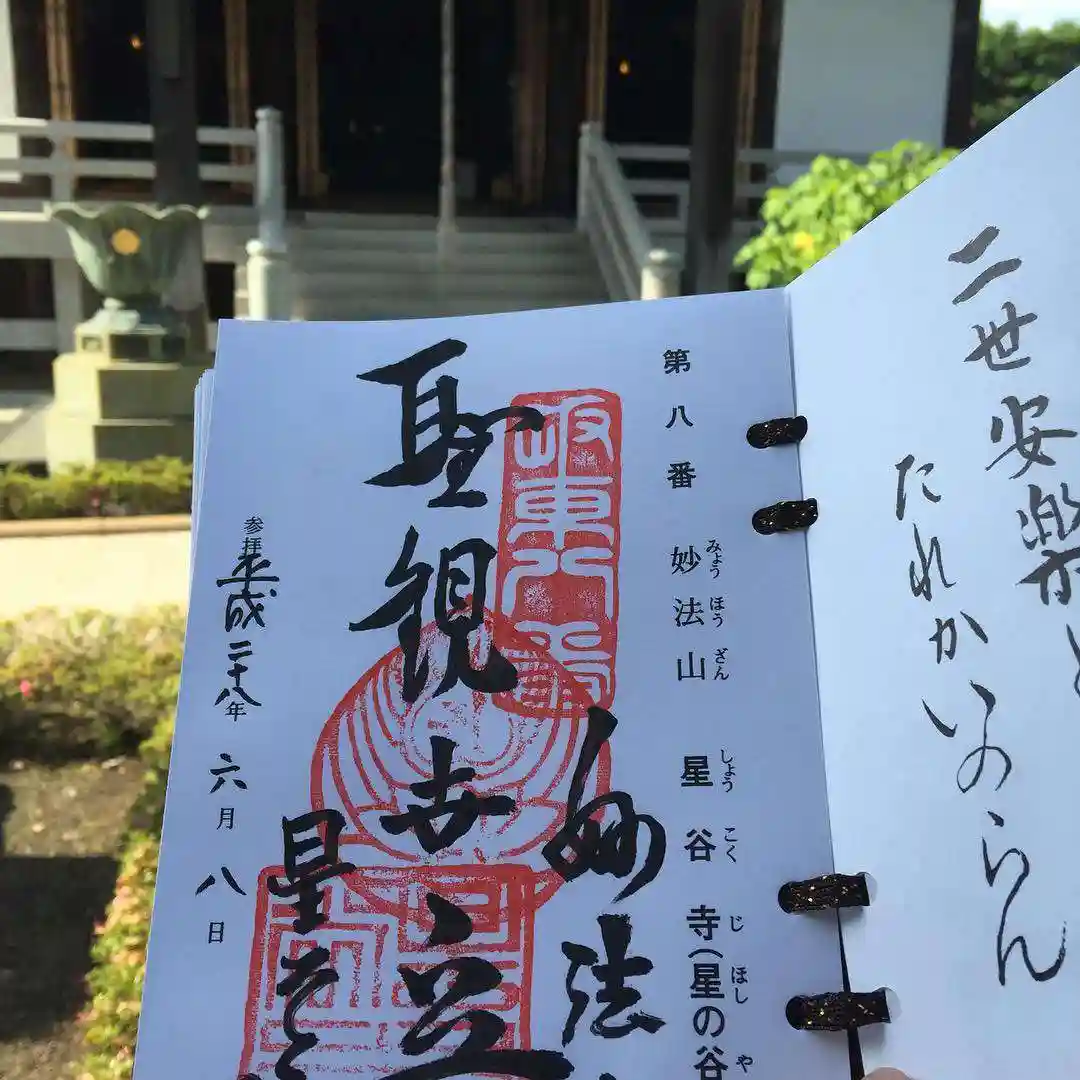 二世安楽と
たれかいのらん
第八番 妙法山 星谷寺(星の谷
みょう ほう ざん しょう こく じ ほし や
坂東八番
妙法
聖観世音
星谷
参拝平成二十八年 六月 八日